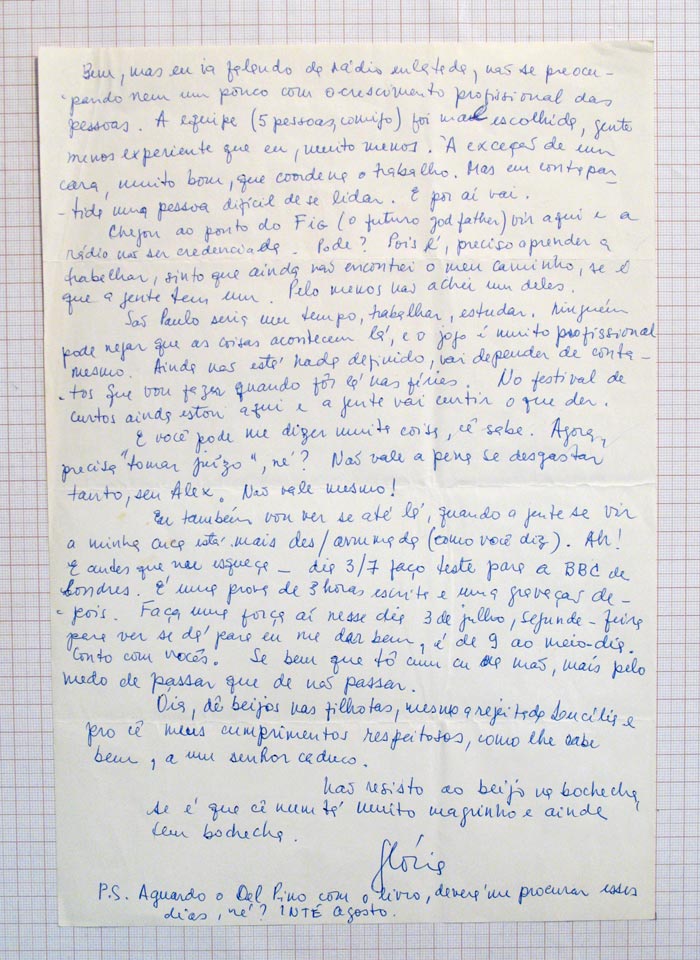 Bem, mas eu ia falando da rádio enlatada, não se preocu-
pando nem um pouco com o crescimento profissional das
pessoas. A equipe (5 pessoas, comigo) foi mal escolhida, gente
menos experiente que eu, muito menos. À exceção de um
cara, muito bom, que coordena o trabalho. Mas em contrapar-
-tida uma pessoa difícil de se lidar. E por aí vai.
Chegou ao ponto do Fig (o futuro godfather) vir aqui e a
rádio nas ser credenciada. Pode? Pois é, preciso aprender a
trabalhar, sinto que ainda não encontrei o meu caminho, se é
que a gente tem um. Pelo menos não achei um deles.
São Paulo seria um tempo, trabalhar, estudar. Ninguém
pode negar que as coisas acontecem lá, e o jogo é muito profissional
mesmo. Ainda não está nada definido, vai depender de conta-
-tos que vou fazer quando fôr lá nas férias. No festival de
curtos ainda estou aqui e a gente vai curtir o que der.
E você pode me dizer muita coisa, cê sabe. Agora,
precisa "tomar juízo", né? Não vale a pena se desgastar
tanto, seu Alex. Não vale mesmo!
Eu também vou ver se até lá, quando a gente se vir
a minha cuca está mais des/arrumada (como você diz). Ah!
E antes que me esqueça — dia 3/7 faço teste para a BBC de
Londres. É uma prova de 3 horas escrita e uma gravação de-
-pois. Faça uma força aí nesse dia 3 de julho, segunda-feira
para ver se dá para eu me dar bem, é de 9 ao meio-dia.
Conto com vocês. Se bem que tô cum cu na mão, mais pelo
medo de passar que de não passar.
Oia, dê beijos nas filhotas, mesmo a rejeitada Lucília e
pro cê meus cumprimentos respeitosos, como lhe sabe
bem, a um senhor caduco.
Não resisto ao beijo na bochecha
se é que cê num tá muito magrinho e ainda
tem bochecha.
Glória
P.S. Aguardo o Del Pino com o livro, deverá me procurar esses
dias, né? INTÉ agosto.